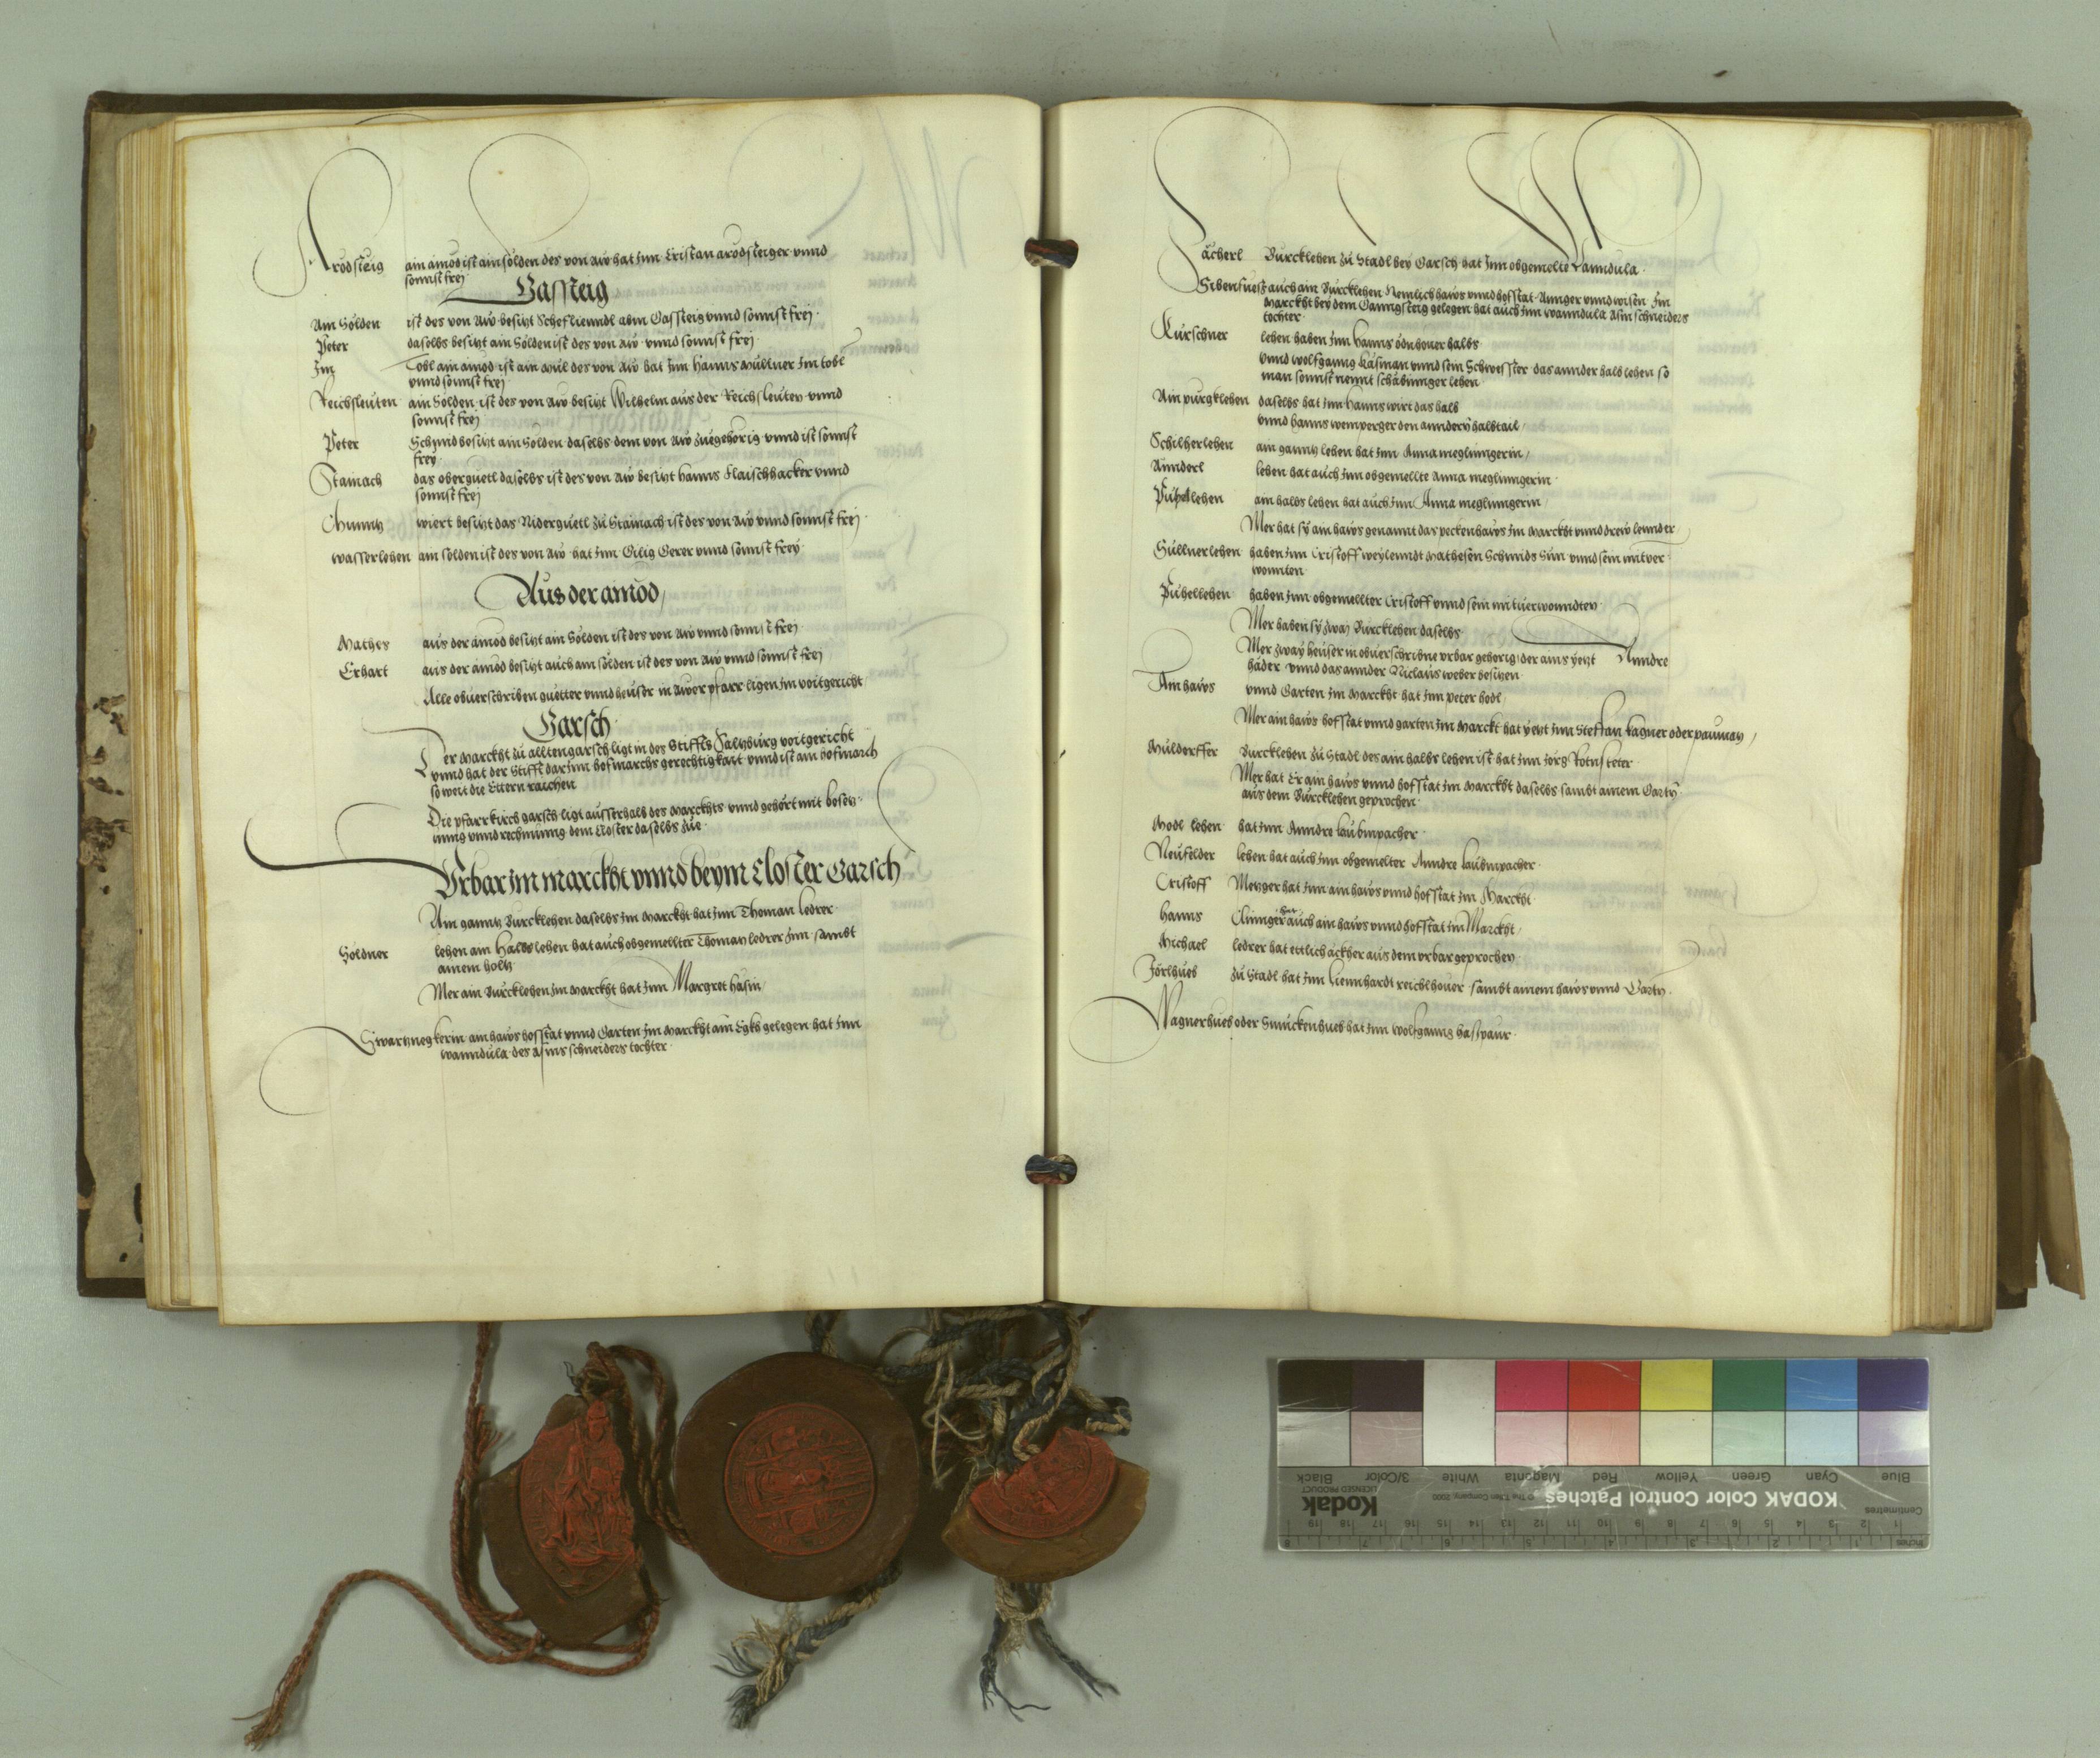 Arodsteig ain ainöd ist ain sölden des von Aw hat Inn Cristan arodsteiger vnnd
sonnst frej
Gassteig
Am Sölden ist des von Aw besitzt Schefliendl abm Gassteig vnnd sonnst frej
Peter daselbs besitzt ain Sölden ist des von Aw vnnd sonnst frej
Im Tobl ain ainöd ist ain Mül des von Aw hat Inn Hanns Müllner Im tobl
vnnd sonnst frej
Reichsleuten ain Sölden ist des von Aw besitzt Wilhelm aus der Reichsleuten vnnd
sonnst frej
Peter Schmid besitzt ain Sölden daselbs dem von Aw zuegehörig vnnd ist sonnst
frey
Stainach das oberguetl daselbs ist des von Aw besitzt Hanns Flaischhacker vnnd
sonnst frej
Chuntz wiert besitzt das Niderguetl zu Stainach ist des von Aw vnnd sonnst frej
wasserlehen ain sölden ist des von Aw hat Inn Gilig Gerer vnnd sonnst frey
Aus der ainöd
Mathes aus der ainöd besitzt ain Sölden ist des von Aw vnnd sonnst frej
Erhart aus der ainöd besitzt auch ain sölden ist des von Aw vnnd sonnst frej
Alle obuerschriben guetter vnnd heuser in Awer pfarr ligen Im voitgericht
Garsch
Der Marckht zu alltengarsch ligt in des Stiffts Saltzburg voitgericht
vnnd hat der Stifft darInn hofmarchs gerechtigkait vnnd ist ain hofmarch
so weit die Ettern raichen
Die pfarrkirch garsch ligt ausserhalb des Marckhts vnnd gehört mit besetz
nung vnnd rechnung dem Closter daselbs zue
Vrbar Im marckht vnnd beym Closter Garsch
Ain gantz Burcklehen daselbs Im Marckht hat Inn Thoman ledrer
Söldner lehen ain Halbs lehen hat auch obgemellter Thoman ledrer Inn sambt
ainem holtz
Mer ain Burcklehen Im Marckht hat Inn Margret hasin
Swartznegkerin ain haws hofstat vnnd Garten Im Marckht am Egkh gelegen hat Inn
wanndula des asms schneiders tochter
Fächerl Burcklehen zu Stadl bey Garsch hat Inn obgemelte Wanndula
Sibenfuess auch ain Burcklehen Nemlich haws vnnd hofstat Annger vnnd wisen Im
Marckht bey dem Ganngsteig gelegen hat auch Inn wanndula Asm schneiders
tochter
Kürschner lehen haben Inn Hanns ödnhouer halbs
vnnd wolfganng käsman vnnd sein Schwesster das annder halb lehen so
man sonnst nennt schäbinger lehen
Am purgklehen daselbs hat Inn Hanns wirt das halb
vnnd Hanns wemperger den anndern halbtail
Schilherlehen ain gantz lehen hat Inn Anna meglingerin
Annderl lehen hat auch Inn obgemellte Anna meglingerin
Pühellehen ain halbs lehen hat auch Inn Anna meglingerin
Mer hat sy ain haws genannt das peckenhaws Im Marckht vnnd drew lennder
Süllnerlehen haben Inn Cristoff weylenndt Mathesen Schmids Sün vnnd sein mitver
wonnten
Pühellehen haben Inn obgemellter Cristoff vnnd sein mituerwonndten
Mer haben sy zway Burcklehen daselbs
Mer zway heuser in obuerschribne vrbar gehörig der ains yetzt Anndre
bader vnnd das annder Niclaus weber besitzen
Ain haws vnnd Garten Im Marckht hat Inn peter hodl
Mer ain haws hofstat vnnd garten Im Marckt hat yetzt Inn Steffan kagner oder
Mulderffer Burcklehen zu Stadl des ain halbs lehen ist hat Inn Jörg
Mer hat Er ain haws vnnd hofstat Im Marckht daselbs sambt ainem Gartn
aus dem Burcklehen geprochen
Modl lehen hat Inn Anndre laubmpacher
Neufelder lehen hat auch Inn obgemelter Anndre laubmpacher
Cristoff Metzger hat Inn ain haws vnnd hofstat Im Marckht
Hanns Clinnger hat auch ain haws vnnd hofstat Im Marckht
Michael ledrer hat ettlich ackher aus dem vrbar geprochen
Jörlhueb zu Stadl hat Inn Liennhardt reichlhouer sambt ainem haws vnnd Gartn
Wagnerhueb oder Smückenhueb hat Inn wolfganng haspaur
KODAK Color Control Patches
Kodak
LICENSED PRODUCT
Blue Cyan Green Yellow Red Magenta White 3/Color Black
Centimetres
Inches